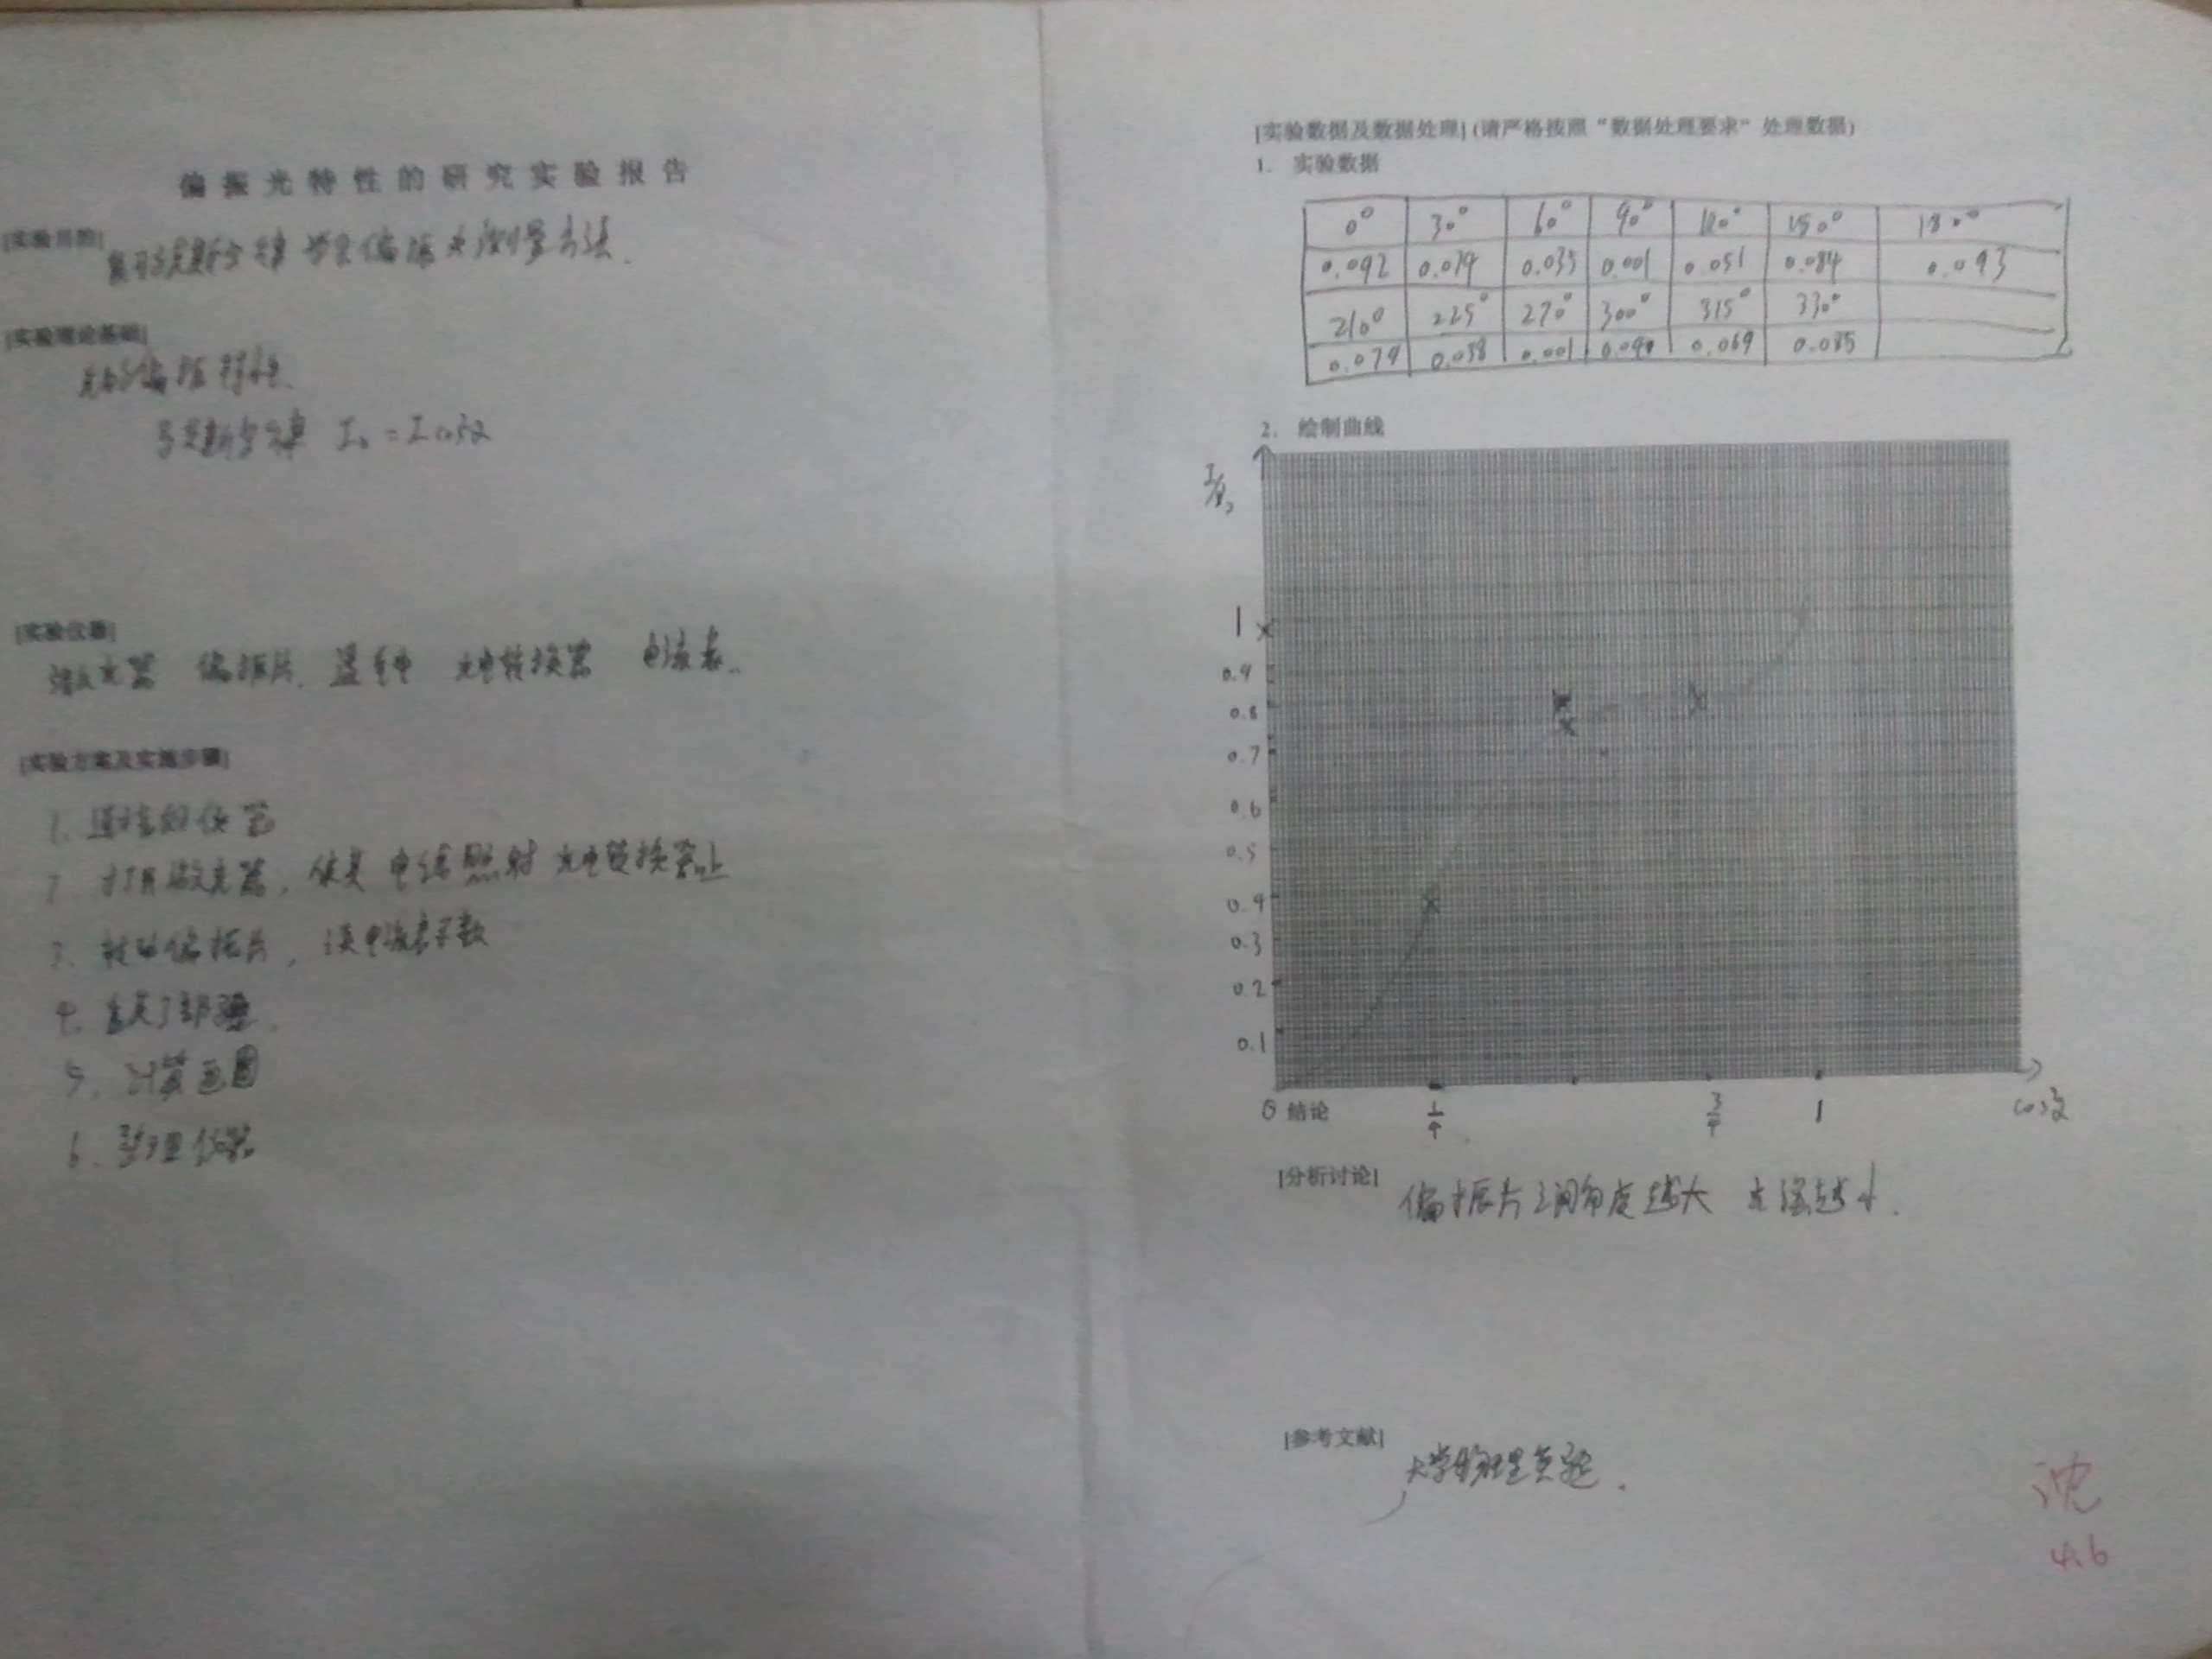 偏振光特性的研究实验报告
[实验目的]
马吕斯定律 学会偏振光测量方法.
[实验理论基础]
光的偏振特性.
马吕斯定律 I₀ = I cos²α
[实验仪器]
激光器 偏振片. 光电转换器 电流表.
[实验方案及实施步骤]
1.
2. 打开激光器, 使其 照射 光电转换器上
3. 转动偏振片, 读电流表示数
4.
5. 计算画图
6. 整理仪器
[实验数据及数据处理] (请严格按照“数据处理要求”处理数据)
1. 实验数据
0° 30° 60° 90° 120° 150° 180°
0.092 0.079 0.035 0.001 0.051 0.084 0.093
210° 225° 270° 300° 315° 330°
0.079 0.038 0.001 0.069 0.085
2. 绘制曲线
I/I₀
1
0.9
0.8
0.7
0.6
0.5
0.4
0.3
0.2
0.1
0 结论 1/4 3/4 1 cos²α
[分析讨论] 偏振片之间角度越大 光强越小.
[参考文献] 大学物理实验.
沈
4.6